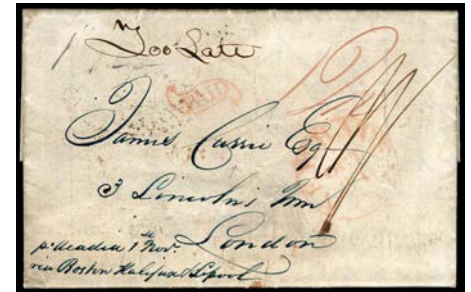 Too Late
PAID
James Currie Esq
3 Lincoln's Inn
London
pr Acadia 1st Novr.
via Boston Halifax & Lpool